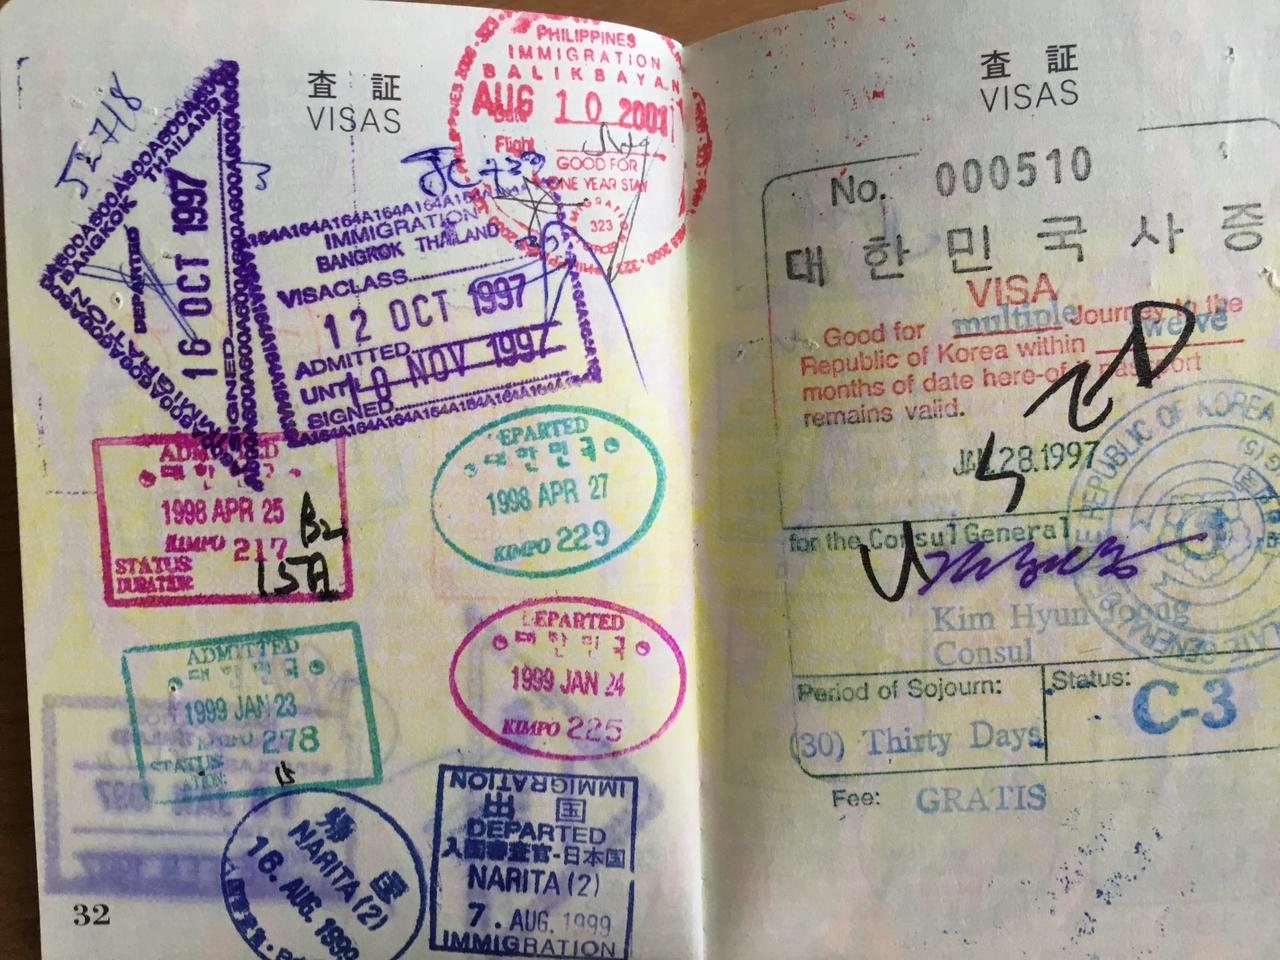 査 証
VISAS
PHILIPPINES
IMMIGRATION
BALIKBAYAN
AUG 10 2001
Date
Flight
GOOD FOR
ONE YEAR STAY
323
52718
THAILAND
BANGKOK
IMMIGRATION
16 OCT 1997
SIGNED
IMMIGRATION
BANGKOK THAILAND
VISACLASS
12 OCT 1997
ADMITTED
UNTIL 10 NOV 1997
SIGNED
ADMITTED
대한민국
1998 APR 25
KIMPO 217
STATUS:
DURATION:
B2
15日
DEPARTED
대한민국
1998 APR 27
KIMPO 229
ADMITTED
대한민국
1999 JAN 23
KIMPO 278
STATUS:
15
DEPARTED
대한민국
1999 JAN 24
KIMPO 225
帰 国
NARITA (2)
16. AUG. 1999
IMMIGRATION
出 国
DEPARTED
入国審査官-日本国
NARITA (2)
7. AUG. 1999
IMMIGRATION
32
査 証
VISAS
No. 000510
대한민국사증
VISA
Good for multiple Journey to the
Republic of Korea within twelve
months of date here-of passport
remains valid.
JAN 28.1997
for the Consul General
Kim Hyun Joong
Consul
REPUBLIC OF KOREA
Period of Sojourn:
(30) Thirty Days
Status:
C-3
Fee: GRATIS